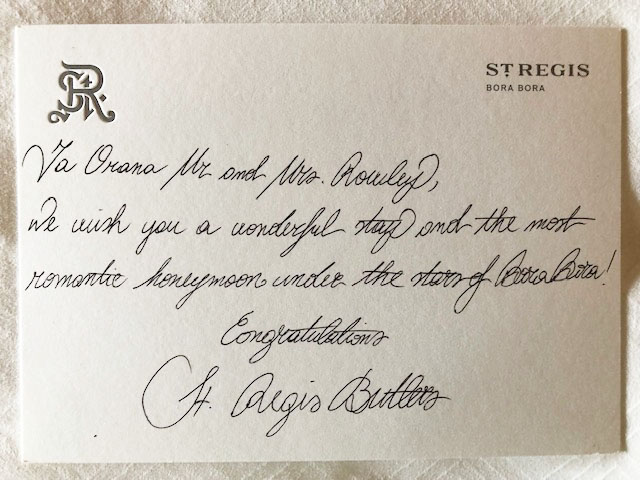 ST REGIS
BORA BORA
Ia Orana Mr and Mrs. Rowley,
We wish you a wonderful stay and the most
romantic honeymoon under the stars of Bora Bora!
Congratulations
St. Regis Butlers